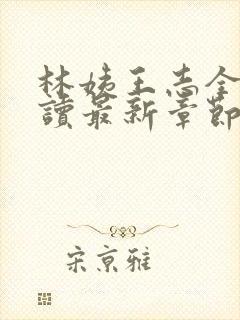 林姨王志全
讀最新章節
宋京雅